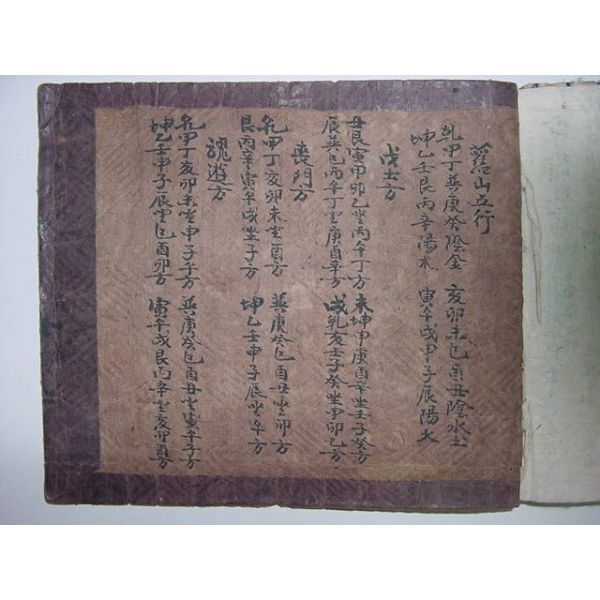 舊山五行
乾甲丁巽庚癸陰金 亥卯未巳酉丑陰水土
坤乙壬艮丙辛陽木 寅午戌申子辰陽火
戊土方
丑艮寅甲卯乙坐丙午丁方 未坤申庚酉辛坐壬子癸方
辰巽巳丙午丁坐庚酉辛方 戌乾亥壬子癸坐甲卯乙方
喪門方
乾甲丁亥卯未坐酉方 巽庚癸巳酉丑坐卯方
艮丙辛寅午戌坐子方 坤乙壬申子辰坐午方
魂遊方
乾甲丁亥卯未坐申子午方 巽庚癸巳酉丑坐寅午子方
坤乙壬申子辰坐巳酉卯方 寅午戌艮丙辛坐亥卯酉方